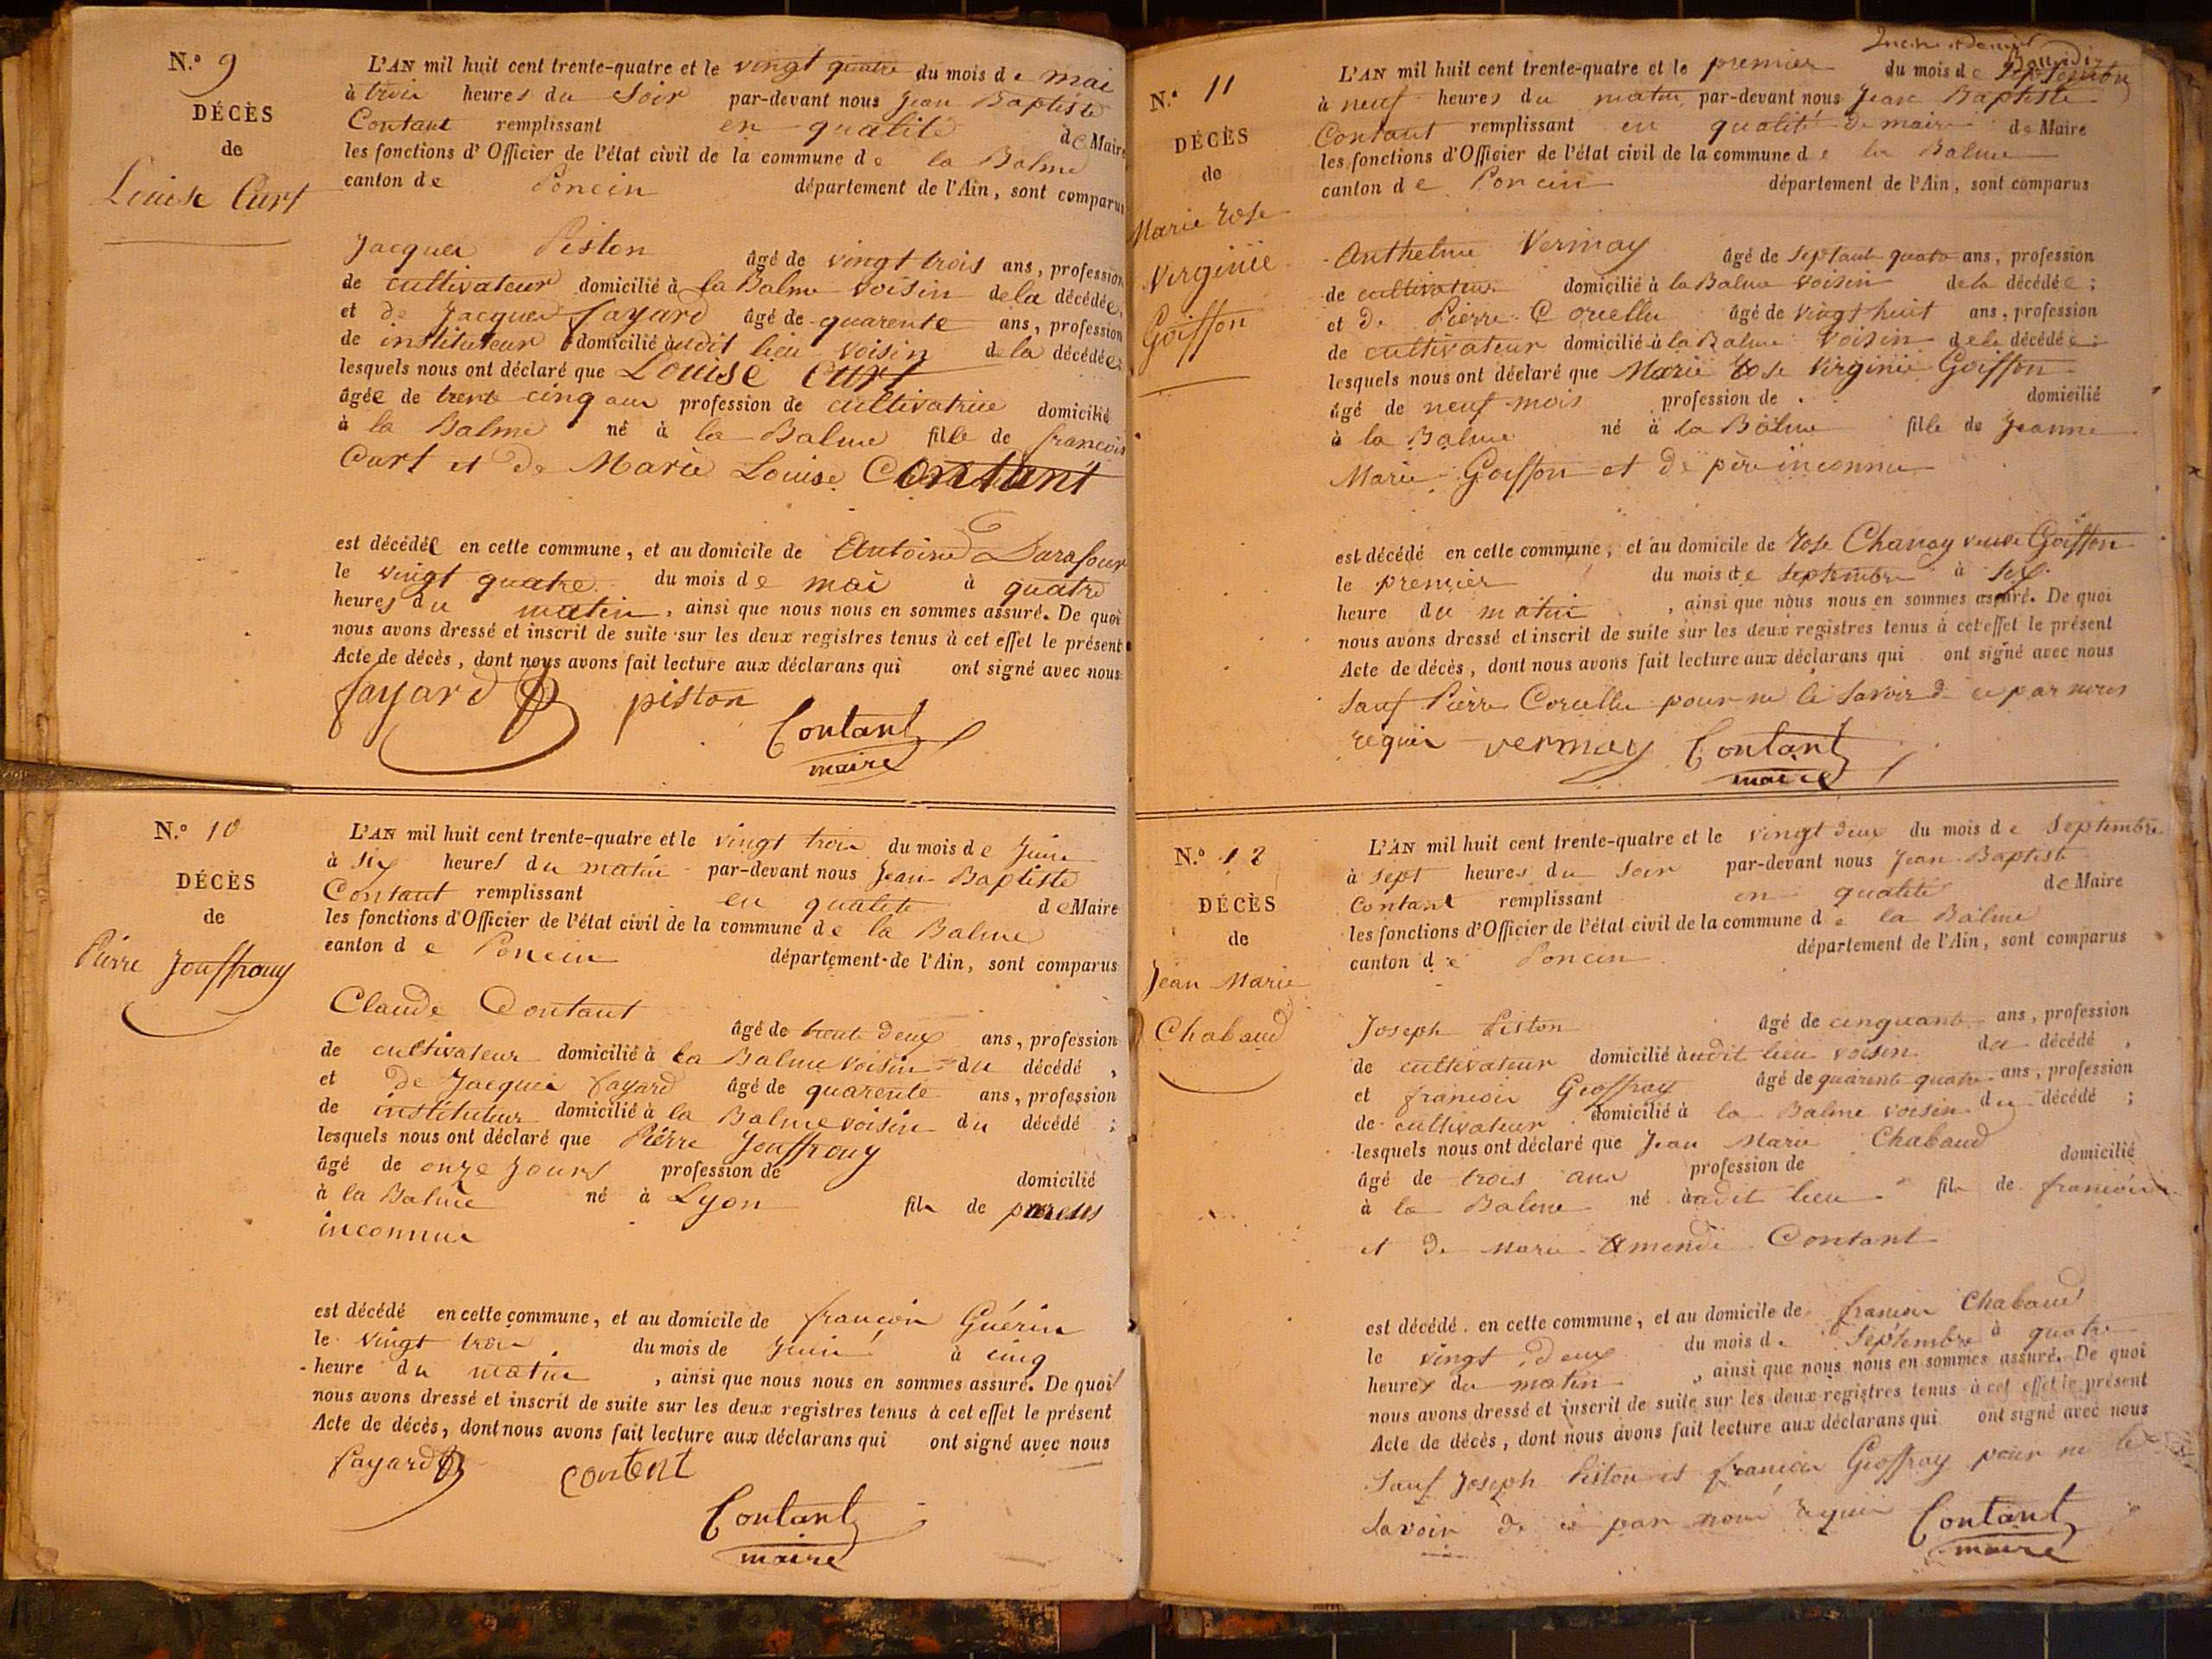 N.º 9
DÉCÈS
de
Louise Curt
L'AN mil huit cent trente-quatre et le vingt quatre du mois de mai
à trois heures du soir par-devant nous Jean Baptiste
Contant remplissant en qualité de Maire
les fonctions d'Officier de l'état civil de la commune de la Balme
canton de Poncin département de l'Ain, sont comparus
Jacques Piston âgé de vingt trois ans, profession
de cultivateur domicilié à la Balme voisin de la décédée,
et de Jacques fayard âgé de quarente ans, profession
de instituteur domicilié audit lieu voisin de la décédée;
lesquels nous ont déclaré que Louise Curt
âgée de trente cinq ans profession de cultivatrice domicilié
à la Balme né à la Balme fille de françois
Curt et de Marie Louise Contant
est décédée en cette commune, et au domicile de Antoine Darafour
le vingt quatre du mois de mai à quatre
heures du matin, ainsi que nous nous en sommes assuré. De quoi
nous avons dressé et inscrit de suite sur les deux registres tenus à cet effet le présent
Acte de décès, dont nous avons fait lecture aux déclarans qui ont signé avec nous
fayard piston
Contant
maire
N.º 10
DÉCÈS
de
Pierre Jouffrouy
L'AN mil huit cent trente-quatre et le vingt trois du mois de Juin
à six heures du matin par-devant nous Jean Baptiste
Contant remplissant en qualité de Maire
les fonctions d'Officier de l'état civil de la commune de la Balme
canton de Poncin département de l'Ain, sont comparus
Claude Contant âgé de trente deux ans, profession
de cultivateur domicilié à la Balme voisin du décédé,
et de Jacques fayard âgé de quarente ans, profession
de instituteur domicilié à la Balme voisin du décédé;
lesquels nous ont déclaré que Pierre Jouffrouy
âgé de onze jours profession de domicilié
à la Balme né à Lyon fils de parens
inconnus
est décédé en cette commune, et au domicile de françois Guérin
le vingt trois du mois de Juin à cinq
heure du matin, ainsi que nous nous en sommes assuré. De quoi
nous avons dressé et inscrit de suite sur les deux registres tenus à cet effet le présent
Acte de décès, dont nous avons fait lecture aux déclarans qui ont signé avec nous
fayard content
Contant
maire
N.º 11
DÉCÈS
de
Marie Rose
Virginie
Goiffon
L'AN mil huit cent trente-quatre et le premier du mois de Septembre
à neuf heures du matin par-devant nous Jean Baptiste
Contant remplissant en qualité de maire de Maire
les fonctions d'Officier de l'état civil de la commune de la Balme
canton de Poncin département de l'Ain, sont comparus
Anthelme Vermay âgé de septante quatre ans, profession
de cultivateur domicilié à la Balme voisin de la décédée;
et de Pierre Corcellu âgé de vingt huit ans, profession
de cultivateur domicilié à la Balme voisin de la décédée;
lesquels nous ont déclaré que Marie Rose Virginie Goiffon
âgé de neuf mois profession de domicilié
à la Balme né à la Balme fille de Jeanne
Marie Goiffon et de père inconnu
est décédé en cette commune, et au domicile de Rose Chanay veuve Goiffon
le premier du mois de septembre à six
heure du matin, ainsi que nous nous en sommes assuré. De quoi
nous avons dressé et inscrit de suite sur les deux registres tenus à cet effet le présent
Acte de décès, dont nous avons fait lecture aux déclarans qui ont signé avec nous
sauf Pierre Corcellu pour ne le savoir de ce par nous
requis vermay Contant
maire
N.º 12
DÉCÈS
de
Jean Marie
Chabaud
L'AN mil huit cent trente-quatre et le vingt deux du mois de Septembre
à sept heures du soir par-devant nous Jean Baptiste
Contant remplissant en qualité de Maire
les fonctions d'Officier de l'état civil de la commune de la Balme
canton de Poncin département de l'Ain, sont comparus
Joseph Piston âgé de cinquante ans, profession
de cultivateur domicilié audit lieu voisin du décédé,
et françois Geoffray âgé de quarente quatre ans, profession
de cultivateur domicilié à la Balme voisin du décédé;
lesquels nous ont déclaré que Jean Marie Chabaud
âgé de trois ans profession de domicilié
à la Balme né audit lieu fils de françois
et de Marie Amende Contant
est décédé en cette commune, et au domicile de françois Chabaud
le vingt deux du mois de Septembre à quatre
heures du matin, ainsi que nous nous en sommes assuré. De quoi
nous avons dressé et inscrit de suite sur les deux registres tenus à cet effet le présent
Acte de décès, dont nous avons fait lecture aux déclarans qui ont signé avec nous
sauf Joseph Piston et françois Geoffray pour ne le
savoir de ce par nous requis Contant
maire